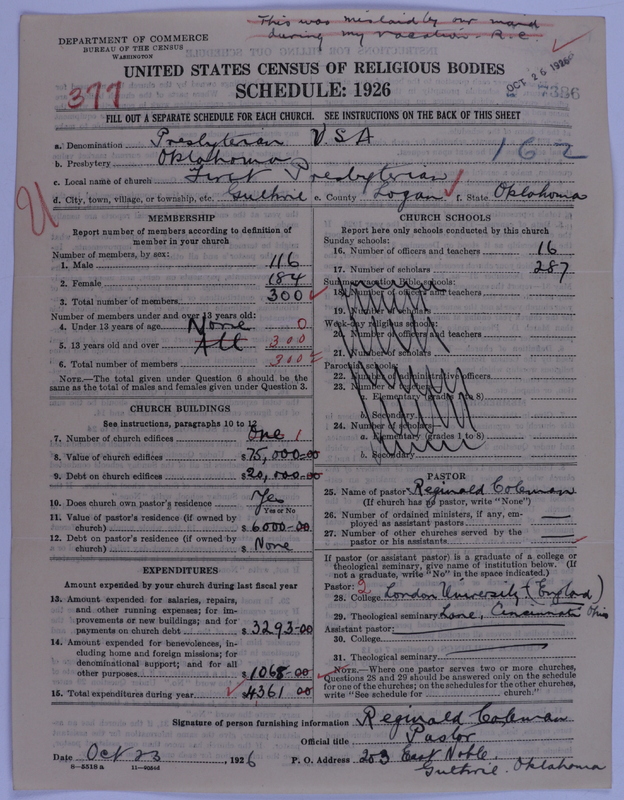 This was mislaid by our maid
during my vacation. R.C.
DEPARTMENT OF COMMERCE
BUREAU OF THE CENSUS
WASHINGTON
UNITED STATES CENSUS OF RELIGIOUS BODIES
SCHEDULE: 1926
OCT 26 1926
7386
377
FILL OUT A SEPARATE SCHEDULE FOR EACH CHURCH. SEE INSTRUCTIONS ON THE BACK OF THIS SHEET
a. Denomination Presbyterian USA
b. Presbytery Oklahoma
162
c. Local name of church First Presbyterian
d. City, town, village, or township, etc. Guthrie e. County Logan f. State Oklahoma
MEMBERSHIP
Report number of members according to definition of
member in your church
Number of members, by sex:
1. Male 116
2. Female 184
3. Total number of members 300
Number of members under and over 13 years old:
4. Under 13 years of age None 0
5. 13 years old and over All 300
6. Total number of members 300
NOTE.—The total given under Question 6 should be the
same as the total of males and females given under Question 3.
CHURCH BUILDINGS
See instructions, paragraphs 10 to 12
7. Number of church edifices One 1
8. Value of church edifices $75,000-00
9. Debt on church edifices $20,000-00
10. Does church own pastor's residence Yes
Yes or No
11. Value of pastor's residence (if owned by
church) $6000-00
12. Debt on pastor's residence (if owned by
church) $ None
EXPENDITURES
Amount expended by your church during last fiscal year
13. Amount expended for salaries, repairs,
and other running expenses; for im-
provements or new buildings; and for
payments on church debt $3293-00
14. Amount expended for benevolences, in-
cluding home and foreign missions; for
denominational support; and for all
other purposes $1068-00
15. Total expenditures during year $4361 00
CHURCH SCHOOLS
Report here only schools conducted by this church
Sunday schools:
16. Number of officers and teachers 16
17. Number of scholars 287
Summer vacation Bible schools:
18. Number of officers and teachers
19. Number of scholars
Week-day religious schools:
20. Number of officers and teachers
21. Number of scholars
Parochial schools:
22. Number of administrative officers
23. Number of teachers:
a. Elementary (grades 1 to 8)
b. Secondary
24. Number of scholars:
a. Elementary (grades 1 to 8)
b. Secondary
PASTOR
25. Name of pastor Reginald Coleman
(If church has no pastor, write "None")
26. Number of ordained ministers, if any, em-
ployed as assistant pastors
27. Number of other churches served by the
pastor or his assistants
If pastor (or assistant pastor) is a graduate of a college or
theological seminary, give name of institution below. (If
not a graduate, write "No" in the space indicated.)
Pastor: 2
28. College London University (England)
29. Theological seminary Lane, Cincinnati Ohio
Assistant pastor:
30. College
31. Theological seminary
NOTE.—Where one pastor serves two or more churches,
Questions 28 and 29 should be answered only on the schedule
for one of the churches; on the schedules for the other churches,
write "See schedule for church."
Signature of person furnishing information Reginald Coleman
Official title Pastor
Date Oct 23, 1926 P. O. Address 203 East Noble,
Guthrie. Oklahoma
8—5518 a